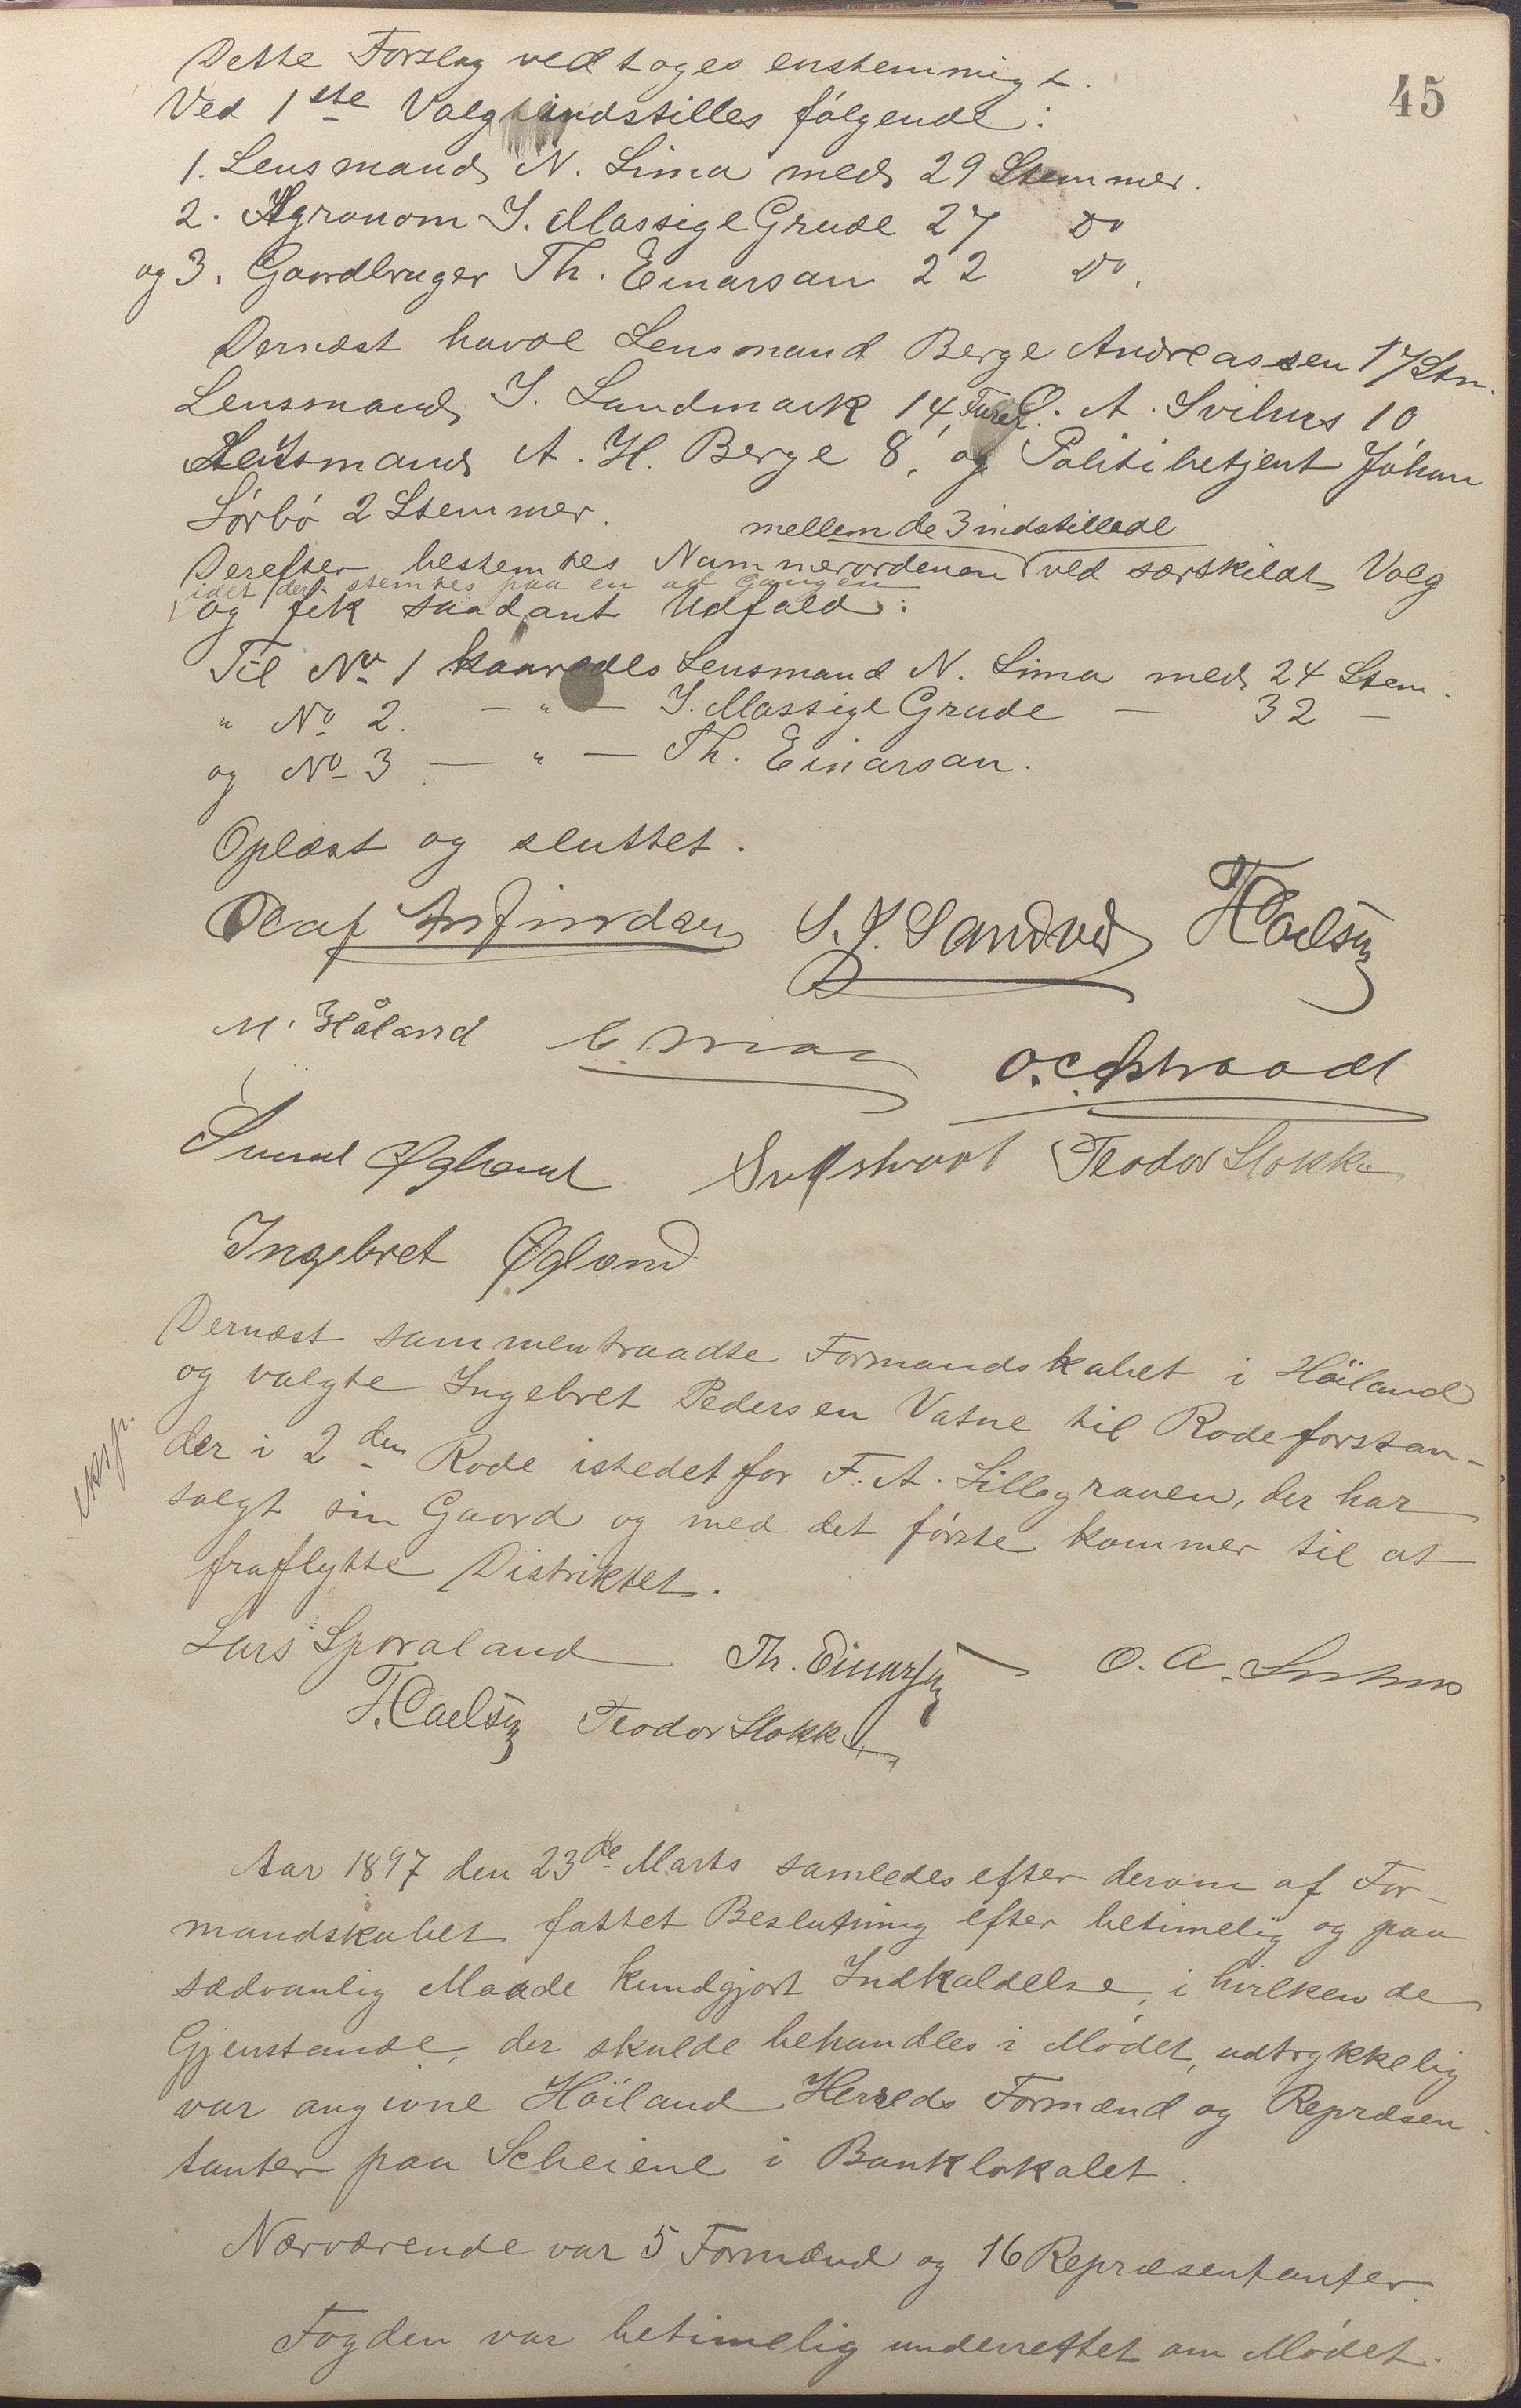 45
Dette Forslag vedtoges enstemmigt.
Ved 1ste Valg indstilles følgende:
1. Lensmand N. Lima med 29 Stemmer.
2. Agronom I. Massige Grude 27 Do
og 3. Gaardbruger Th. Einarsan 22 Do.
Dernæst havde Lensmand Berge Andreassen 17 Stm.
Lensmand I. Landmark 14, O. A. Svihus 10
Lensmand A. H. Berge 8, og Politibetjent Johan
Sørbø 2 Stemmer.
mellem de 3 indstillede
Derefter bestemtes Nummerordenen ved særskildt Valg
idet der stemtes paa en ad Gangen
og fik saadant Udfald:
Til No 1 kaaredes Lensmand N. Lima med 24 Stem.
" No 2. — " — I. Massige Grude — 32 —
og No 3 — " — Th. Einarsan.
Oplæst og sluttet.
Olaf Anfindsen S. J. Sandved
M. Håland O. C. Østraadt
Svend Øgland Teodor Stokka
Ingebret Øgland
Dernæst sammentraadte Formandskabet i Höiland
og valgte Ingebret Pedersen Vatne til Rodeforstan-
eksp.
der i 2den Rode istedetfor F. A. Lillegraven, der har
solgt sin Gaard og med det første kommer til at
fraflytte Distriktet.
Lars Sporaland Th. Einarsen O. A. Svihus
Teodor Stokka
Aar 1897 den 23de Marts samledes efter derom af For-
mandskabet fattet Beslutning efter betimelig og paa
sædvanlig Maade kundgjort Indkaldelse, i hvilken de
Gjenstande, der skulde behandles i Mødet, udtrykkelig
var angivne Höiland Herreds Formænd og Repræsen-
tanter paa Scheiene i Banklokalet.
Nærværende var 5 Formænd og 16 Repræsentanter.
Fogden var betimelig underrettet om Mødet.